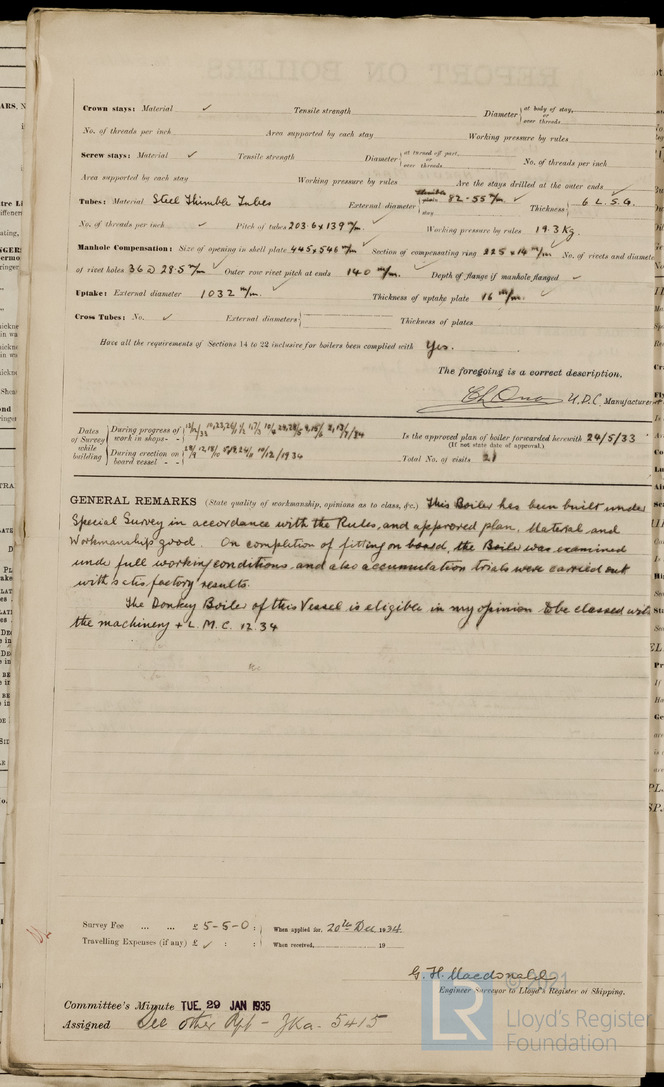 Crown stays: Material ✓ Tensile strength Diameter { at body of stay, or over threads
No. of threads per inch Area supported by each stay Working pressure by rules
Screw stays: Material ✓ Tensile strength Diameter { at turned off part, or over threads No. of threads per inch
Area supported by each stay Working pressure by rules Are the stays drilled at the outer ends
Tubes: Material Steel Thimble Tubes External diameter { plain stay 82-55 m/m ✓ Thickness 6 L.S.G.
No. of threads per inch ✓ Pitch of tubes 203.6 x 139 m/m ✓ Working pressure by rules 19.3 Kg.
Manhole Compensation: Size of opening in shell plate 445 x 546 m/m ✓ Section of compensating ring 225 x 14 m/m ✓ No. of rivets and diamete
of rivet holes 36 @ 28.5 m/m ✓ Outer row rivet pitch at ends 140 m/m. ✓ Depth of flange if manhole flanged ✓
Uptake: External diameter 1032 m/m. ✓ Thickness of uptake plate 16 m/m. ✓
Cross Tubes: No. ✓ External diameters { Thickness of plates
Have all the requirements of Sections 14 to 22 inclusive for boilers been complied with Yes.
The foregoing is a correct description,
U.D.C. Manufacturer
Dates of Survey while building { During progress of work in shops - -
Is the approved plan of boiler forwarded herewith 24/5/33
(If not state date of approval.)
During erection on board vessel - - 10/12/1934 Total No. of visits 21
GENERAL REMARKS (State quality of workmanship, opinions as to class, &c.) This Boiler has been built under
Special Survey in accordance with the Rules, and approved plan. Material and
Workmanship good. On completion of fitting on board, the Boiler was examined
under full working conditions and also accumulation trials were carried out
with satisfactory results.
The Donkey Boiler of this Vessel is eligible in my opinion to be classed with
the machinery + L.M.C. 12.34
Survey Fee ... ... £ 5-5-0 : When applied for, 20th Dec 1934
Travelling Expenses (if any) £ ✓ : : When received, 19
G. H. Macdonald
Engineer Surveyor to Lloyd's Register of Shipping.
Committee's Minute TUE. 29 JAN 1935
Assigned See other Rpt - Yka. 5415
© 2021
LR
Lloyd's Register
Foundation